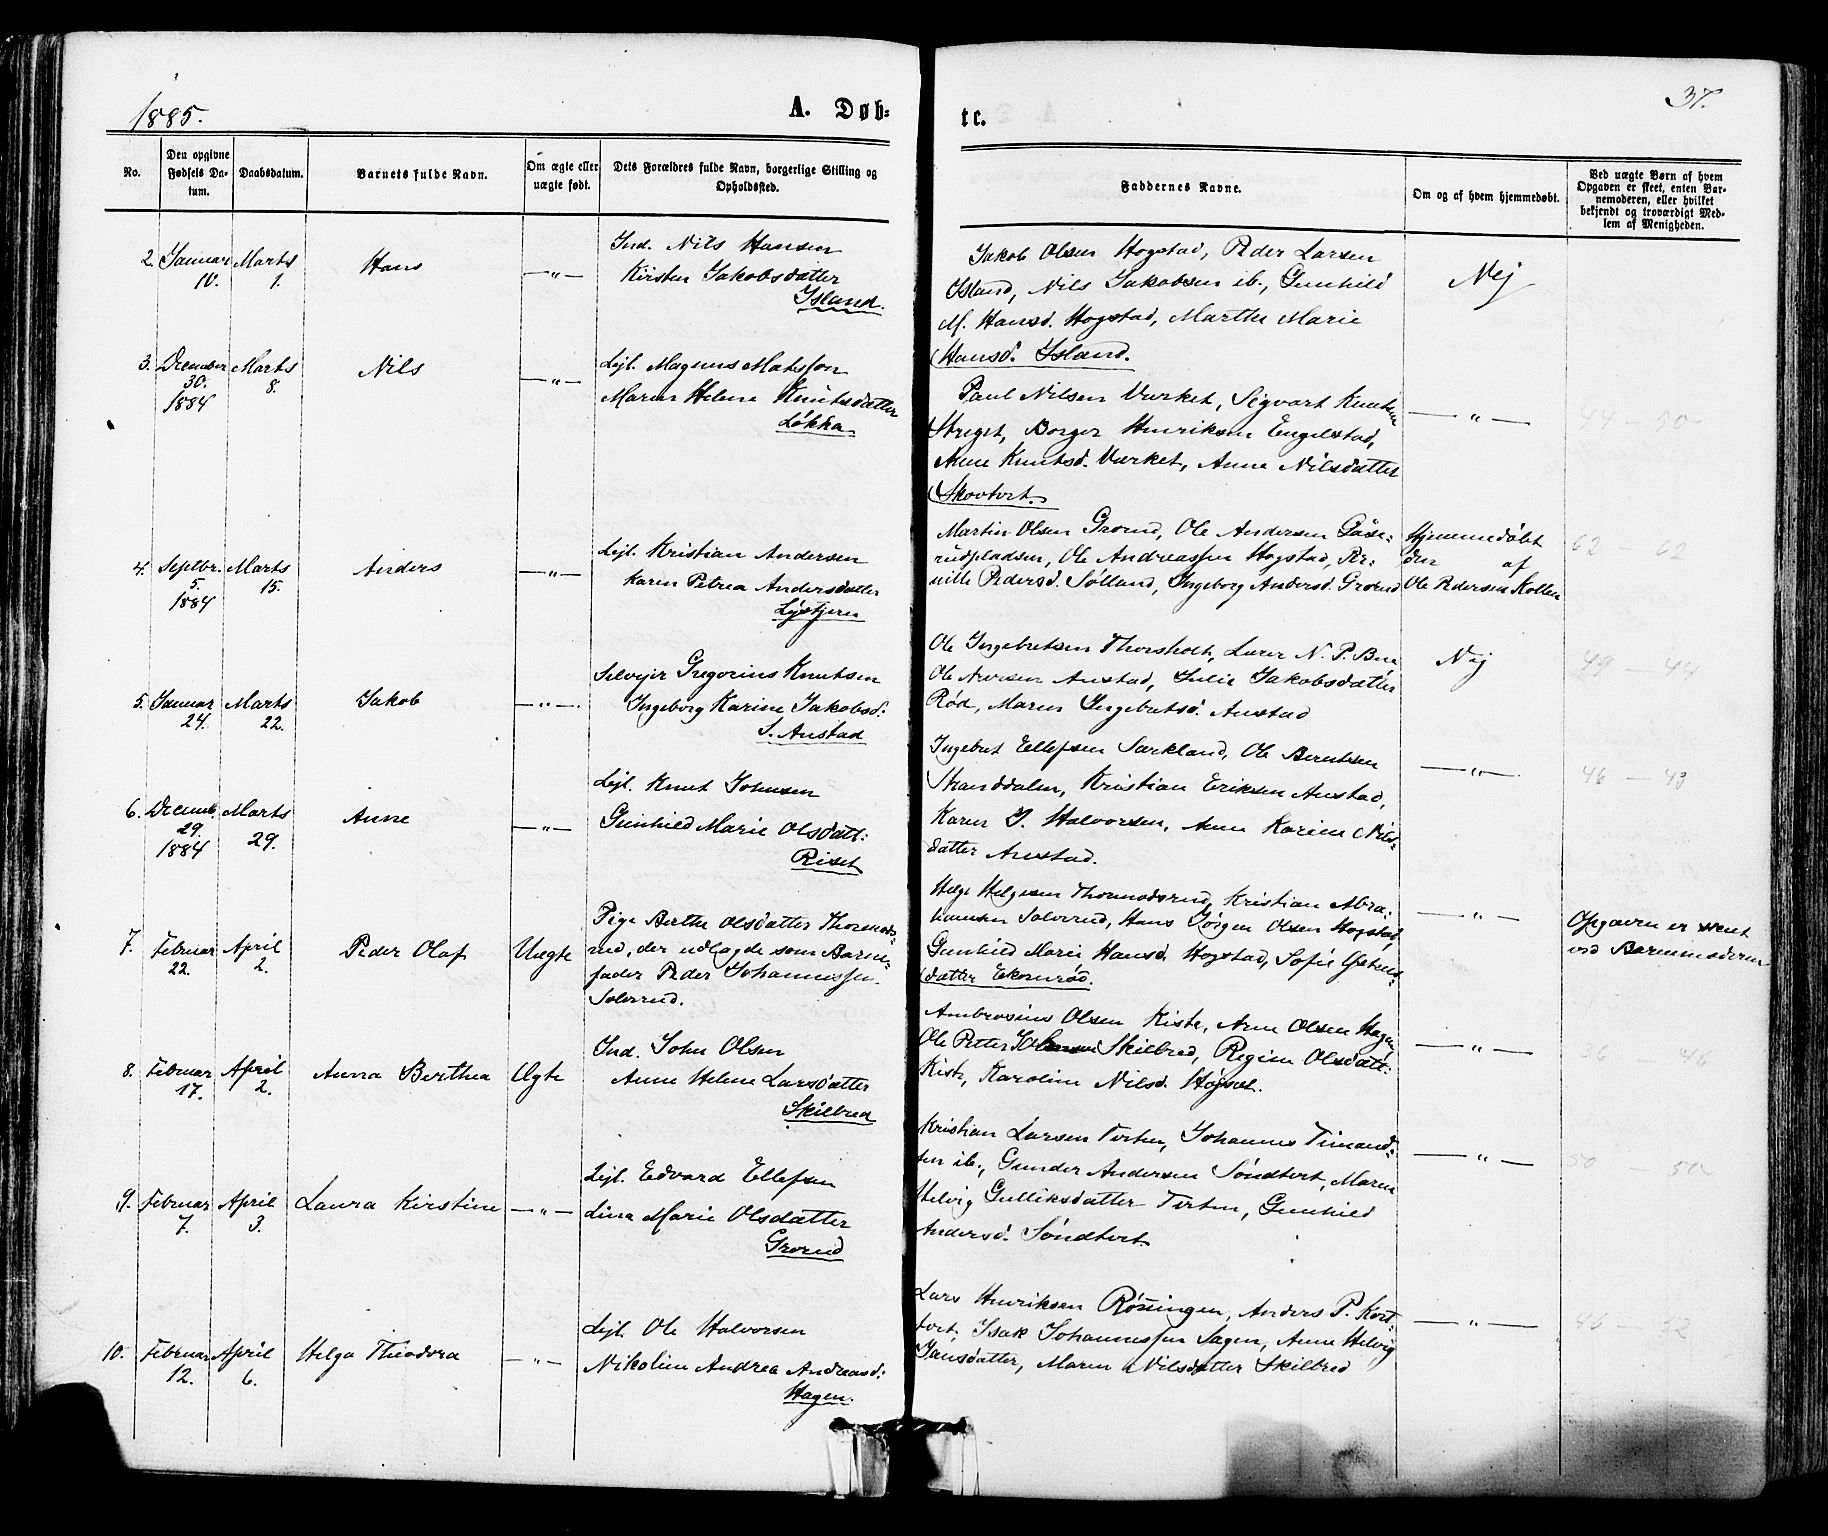 1885.
A. Døb-
te.
37.
No.
Den opgivne Fødsels Da-
tum.
Daabsdatum.
Barnets fulde Navn.
Om ægte eller uægte født.
Dets Forældres fulde Navn, borgerlige Stilling og Opholdssted.
Faddernes Navne.
Om og af hvem hjemmedøbt.
Ved uægte Børn af hvem
Opgaven er skeet, enten Bar-
nemoderen, eller hvilket
bekjendt og troværdigt Med-
lem af Menigheden.
2. Januar 10. Marts 1. Hans —"—
Ind. Nils Hansen
Kirsten Jakobsdatter
Island.
Jakob Olsen Hogstad, Peder Larsen
Island, Nils Jakobsen ib., Gunhild
M. Hansd. Hogstad, Marthe Marie
Hansd. Island.
Nej
3. December 30. 1884 Marts 8. Nils —"—
Lejl. Magnus Matsson
Maren Helene Knutsdatter
Løkka
Paul Nilsen Værket, Sigvart Knutsen
Steget, Borger Henriksen Engelstad,
Anne Knutsd. Værket, Anne Nilsdatter
Skovtvet.
—"—
44 — 50
4. Septbr. 5. 1884 Marts 15. Anders —"—
Lejl. Kristian Andersen
Karen Petrea Andersdatter
Lystjern
Martin Olsen Grorud, Ole Andersen Gåse-
rudpladsen, Ole Andreassen Hogstad, Per-
nille Pedersd. Sølland, Ingeborg Andersd. Grorud
Hjemmedøbt
den af
Ole Pedersen Kollen
62 — 62
5. Januar 24. Marts 22. Jakob —"—
Selvejer Gregorius Knutsen
Ingeborg Karine Jakobsd:
S. Austad
Ole Ingebretsen Thorsholt, Lærer N. P. Bue,
Ole Iversen Austad, Julie Jakobsdatter
Rød, Maren Ingebretsd. Austad
Nej
49 — 44
6. Decemb. 29. 1884 Marts 29. Anne —"—
Lejl. Knut Johnsen
Gunhild Marie Olsdatt:
Riset
Ingebret Ellefsen Sørkland, Ole Berntsen
Stranddalen, Kristian Eriksen Austad,
Karen J. Halvorsen, Anne Karine Nils-
datter Austad.
—"—
46 — 43
7. Februar 22. April 2. Peder Olaf Uægte
Pige Berthe Olsdatter Thormods-
rud, der udlagde som Barne-
fader Peder Johannessen
Solerud.
Helge Helgesen Thormodsrud, Kristian Abra-
hamsen Solerud, Hans Jørgen Olsen Hogstad
Gunhild Marie Hansd. Hogstad, Sofie Østens-
datter Ekornrød.
—"—
Opgaven er skeet
ved Barnemoderen
8. Februar 17. April 2. Anna Berthea Ægte
Ind. John Olsen
Anne Helene Larsdatter
Skilbred
Ambrosius Olsen Kiste, Arne Olsen Hagen
Ole Petter Johnsen Skilbred, Regine Olsdatt:
Kiste, Karoline Nilsd. Høgset.
—"—
36 46
9. Februar 7. April 3. Laura Kirstine —"—
Lejl. Edvard Ellefsen
Lina Marie Olsdatter
Grorud
Kristian Larsen Tirten, Johannes Timand-
sen ib., Gunder Andersen Søndtvet, Maren
Helvig Gulliksdatter Tirten, Gunhild
Andersd. Søndtvet.
—"—
50 — 50
10. Februar 12. April 6. Helga Theodora —"—
Lejl. Ole Halvorsen
Nikoline Andrea Andreasd:
Hagen.
Lars Henriksen Rønningen, Anders P. Kort-
tvet, Isak Johannessen Sagen, Anne Helvig
Jansdatter, Maren Nilsdatter Skilbred
—"—
46 — 52